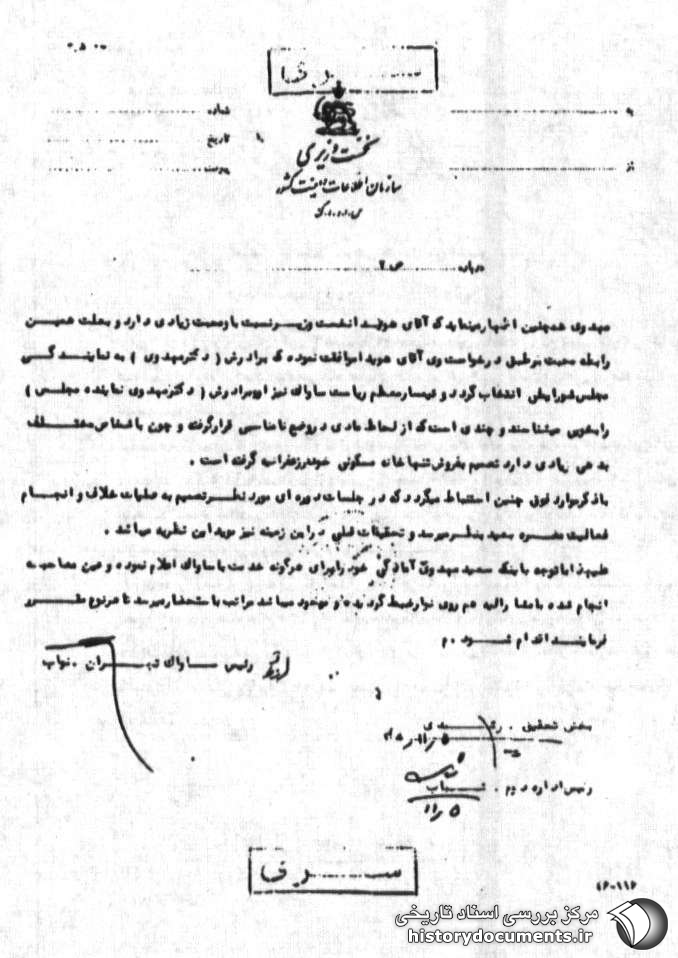 سری
به
شماره
تاریخ
از
پیوست
نخست وزیری
سازمان اطلاعات و امنیت کشور
س.ا.و.ا.ک
درباره ص.۲
مهدوی همچنین اظهار مینماید که آقای هویدا نخست وزیر نسبت باو محبت زیادی دارد و بعلت همین
رابطه محبت برطبق درخواست وی آقای هویدا موافقت نموده که برادرش ( دکتر مهدوی ) به نمایندگی
مجلس شورایملی انتخاب گردد و تیمسار معظم ریاست ساواک نیز او و برادرش ( دکتر مهدوی نماینده مجلس )
را بخوبی میشناسند و چندی است که از لحاظ مادی در وضع نامناسبی قرار گرفته و چون باشخاص مختلف
بدهی زیادی دارد تصمیم بفروش تنها خانه مسکونی خود در زعفرانیه گرفته است .
با ذکر موارد فوق چنین استنباط میگردد که در جلسات دوره ای مورد نظر تصمیم به عملیات خلاف و انجام
فعالیت مضره بعید بنظر میرسد و تحقیقات قبلی در این زمینه نیز موید این نظریه میباشد .
علیهذا با توجه باینکه سعید مهدوی آمادگی خود را برای هرگونه خدمت با ساواک اعلام نموده و عین مصاحبه
انجام شده با مشارالیه هم روی نوار ضبط گردیده و موجود میباشد مراتب باستحضار میرسد تا هر نوع مقرر
فرمایند اقدام شود . م
رئیس ساواک تهران . نواب
بخش تحقیق .
رئیس اداره دوم .
۵ ر۱۱
سری
۴۶-۱۱۶
مرکز بررسی اسناد تاریخی
historydocuments.ir